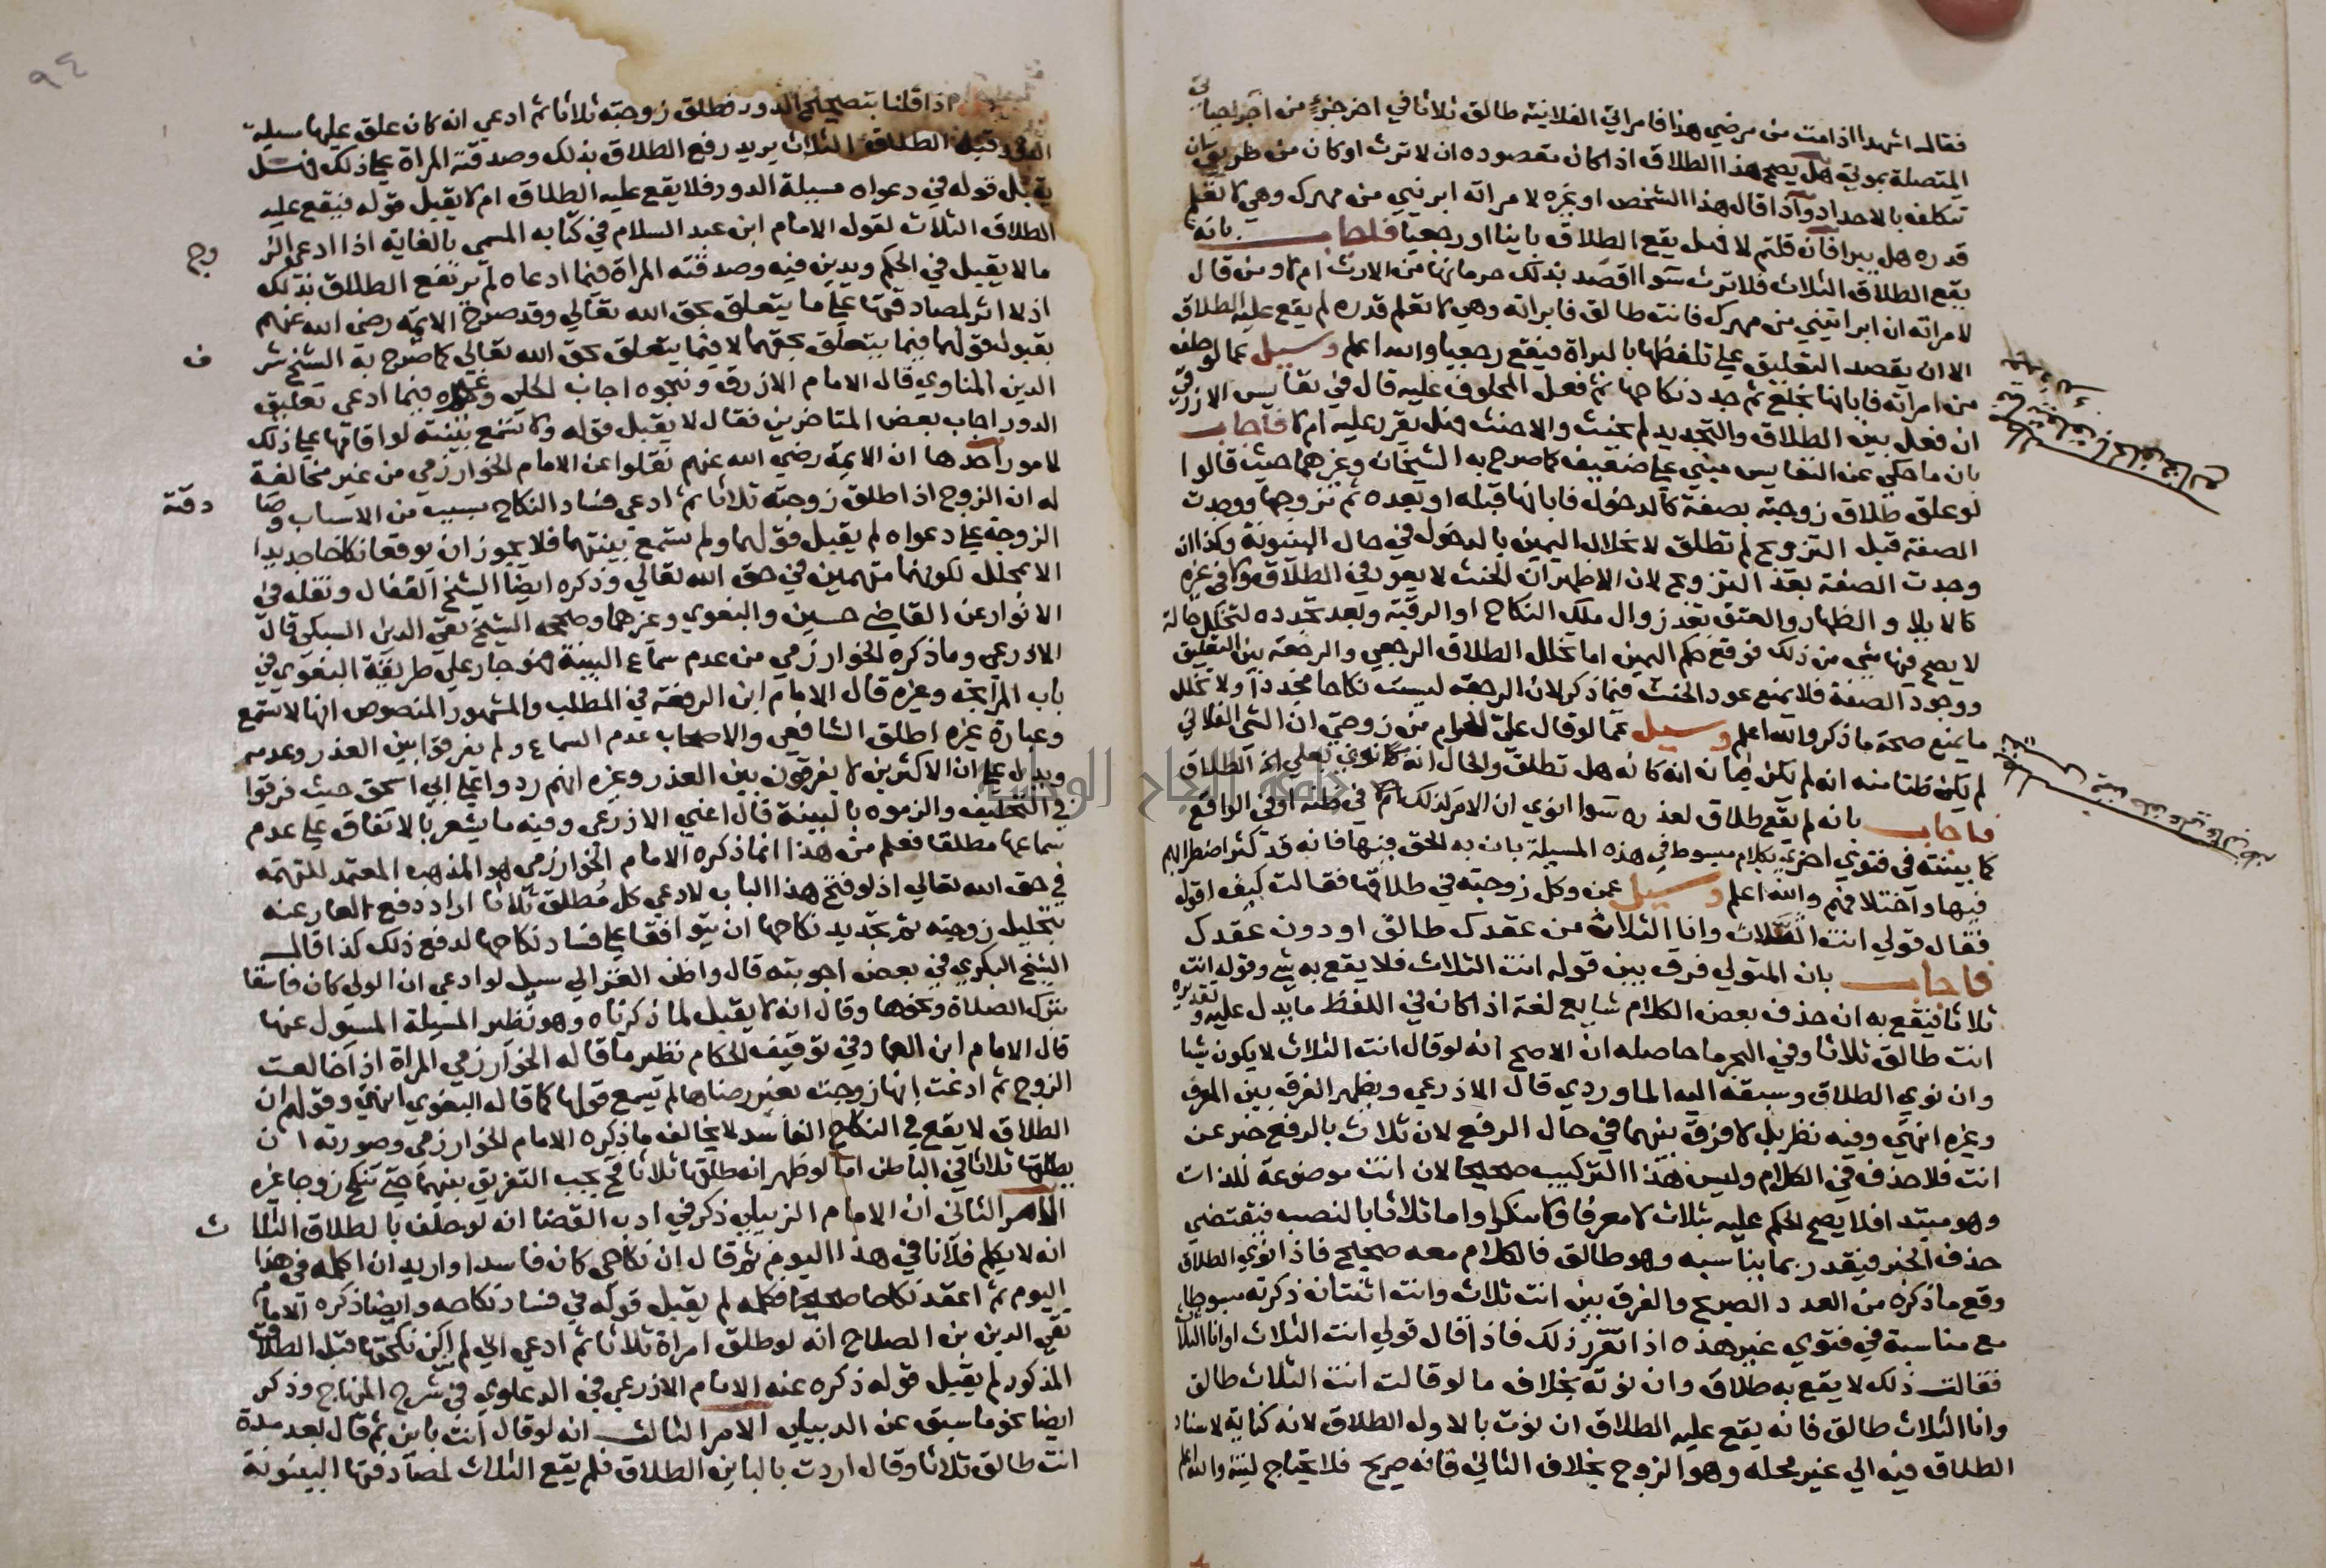 فقال اشهدا اذا مت من مرضي هذا فامراتي الفلانية طالق ثلاثا في اخر جزء من اجزا حياتي
المتصلة بموتي هل يصح هذا الطلاق اذا كان مقصوده ان لا ترث او كان من طريق ان
تتكلف بالاحداد واذا قال هذا الشخص او غيره لامراته ابريني من مهرك وهي لا تعلم
قدره هل يبرا فان قلتم لا فهل يقع الطلاق باينا او رجعيا فاجاب بانه
يقع الطلاق الثلاث فلا ترث سوا اقصد بذلك حرمانها من الارث ام لا ومن قال
لامراته ان ابراتيني من مهرك فانت طالق فابراته وهي لا تعلم قدره لم يقع عليه الطلاق
الا ان يقصد التعليق على تلفظها بالبراة فيقع رجعيا والله اعلم وسيل عما لو حلف
من امراته فابانها بخلع ثم جدد نكاحها ثم فعل المحلوف عليه قال في نفايس الازرقي
ان فعل بين الطلاق والتجديد لم يحنث والا حنث فهل يقرر عليه ام لا فاجاب
بان ما حكي عن النفايس مبني على ضعيف كما صرح به الشيخان وغيرهما حيث قالوا
لو علق طلاق زوجته بصفة كالدخول فابانها قبله او بعده ثم تزوجها ووجدت
الصفة قبل التزويج لم تطلق لانحلال اليمين بالدخول في حال البينونة وكذا ان
وجدت الصفة بعد التزويج لان الاظهر ان الحنث لا يعود في الطلاق ولا في غيره
كالايلا والظهار والعتق بعد زوال ملك النكاح او الرقبة وبعد تجدده لتخلل حالة
لا يصح فيها شي من ذلك فرفع حكم اليمين اما تخلل الطلاق الرجعي والرجعة بين التعليق
ووجود الصفة فلا يمنع عود الحنث فيما ذكر لان الرجعة ليست نكاحا مجددا ولا تخلل
ما يمنع صحة ما ذكر والله اعلم وسيل عما لو قال علي الحرام من زوجتي ان الشي الفلاني
لم يكن ظنا منه انه لم يكن ثم بان انه كان هل تطلق والحال انه كانوي بعلي الحرام الطلاق
فاجاب بانه لم يقع طلاق لعذره سوا انوي ان الامر كذلك ام في ظنه او في الواقع
كما بينته في فتوي اخري بكلام مبسوط في هذه المسيلة بان به الحق فيها فانه قد كثر اضطرابهم
فيها واختلافهم والله اعلم وسيل عمن وكل زوجته في طلاقها فقالت كيف اقول
فقال قولي انت الثلاث وانا الثلاث من عقدك طالق او دون عقدك
فاجاب بان المتولي فرق بين قوله انت الثلاث فلا يقع به شي وقوله انت
ثلاثا فيقع به ان حذف بعض الكلام شايع لغة اذا كان في اللفظ ما يدل عليه وتقديره
انت طالق ثلاثا وفي البحر ما حاصله ان الاصح انه لو قال انت الثلاث لا يكون شيا
وان نوي الطلاق وسبقه اليه الماوردي قال الاذرعي ويظهر الفرق بين المعرف
وغيره انتهي وفيه نظر بل لا فرق بينهما في حال الرفع لان ثلاث بالرفع خبر عن
انت فلا حذف في الكلام وليس هذا التركيب صحيحا لان انت موضوعة للذات
وهو مبتدا فلا يصح الحكم عليه بثلاث لا معرفا ولا منكرا واما ثلاثا بالنصب فيقتضي
حذف الخبر فيقدر بما يناسبه وهو طالق فالكلام معه صحيح فاذا نوي الطلاق
وقع ما ذكره من العدد الصريح والفرق بين انت ثلاث وانت اثنتان ذكرته مبسوطا
مع مناسبة في فتوي غير هذه اذا تقرر ذلك فاذا قال قولي انت الثلاث او انا الثلاث
فقالت ذلك لا يقع به طلاق وان نوته بخلاف ما لو قالت انت الثلاث طالق
وانا الثلاث طالق فانه يقع عليه الطلاق ان نوت بالاول الطلاق لانه كناية لاسناد
الطلاق فيه الي غير محله وهو الزوج بخلاف الثاني فانه صريح فلا يحتاج لنية والله اعلم
٩٤
اذا قلنا بتصحيح الدور فطلق زوجته ثلاثا ثم ادعي انه كان علق عليها مسيلة
الدور قبل الطلاق الثلاث يريد رفع الطلاق بذلك وصدقته المراة على ذلك فهل
يقبل قوله في دعواه مسيلة الدور فلا يقع عليه الطلاق ام لا يقبل قوله فيقع عليه
الطلاق الثلاث لقول الامام ابن عبد السلام في كتابه المسمي بالغاية اذا ادعي الزوج
ما لا يقبل في الحكم ويدين فيه وصدقته المراة فيما ادعاه لم يرتفع الطلاق بذلك
اذ لا اثر لمصادقتها على ما يتعلق بحق الله تعالي وقد صرح الايمة رضي الله عنهم
بقبول قولها فيما يتعلق بحقهما لا فيما يتعلق بحق الله تعالي كما صرح به الشيخ شرف
الدين المناوي قال الامام الازرق ونحوه اجاب الحلي وغيره فيما ادعي تعليق
الدور اجاب بعض المتاخرين فقال لا يقبل قوله ولا تسمع بينته لو اقامها على ذلك
لامور احدها ان الايمة رضي الله عنهم نقلوا عن الامام الخوارزمي من غير مخالفة
له ان الزوج اذا طلق زوجته ثلاثا ثم ادعي فساد النكاح بسبب من الاسباب وصادقته
الزوجة على دعواه لم يقبل قولهما ولم تسمع بينتهما فلا يجوز ان يوقعا نكاحا جديدا
الا بمحلل لكونهما متهمين في حق الله تعالي وذكره ايضا الشيخ القفال ونقله في
الانوار عن القاضي حسين والبغوي وغيرهما وصححه الشيخ تقي الدين السبكي قال
الاذرعي وما ذكره الخوارزمي من عدم سماع البينة هو جار على طريقة البغوي في
باب المرابحة وغيره قال الامام ابن الرفعة في المطلب والمشهور المنصوص انها لا تسمع
وعبارة غيره اطلق الشافعي والاصحاب عدم السماع ولم يفرقوا بين العذر وعدمه
ويدل على ان الاكثرين لا يفرقون بين العذر وغيره انهم ردوا على ابي اسحق حيث فرقوا
في التحليف والزموه بالبينة قال اعني الاذرعي وفيه ما يشعر بالاتفاق على عدم
سماعها مطلقا فعلم من هذا ان ما ذكره الامام الخوارزمي هو المذهب المعتمد للتهمة
في حق الله تعالي اذ لو فتح هذا الباب لادعي كل مطلق ثلاثا اراد دفع العار عنه
بتحليل زوجته ثم تجديد نكاحها ان يتوافقا على فساد نكاحها لدفع ذلك كذا قال
الشيخ البكري في بعض اجوبته قال واظن الغزالي سيل لو ادعي ان الولي كان فاسقا
بترك الصلاة ونحوها وقال انه لا يقبل لما ذكرناه وهو نظير المسيلة المسيول عنها
قال الامام ابن العماد في توقيف الحكام نظير ما قاله الخوارزمي المراة اذا خالعت
الزوج ثم ادعت انها زوجت بغير رضاها لم تسمع قولها كما قاله البغوي انتهي وقولهم ان
الطلاق لا يقع في النكاح الفاسد لا يخالف ما ذكره الامام الخوارزمي وصورته ان
يطلقها ثلاثا في الباطن اما لو ظهر انه طلقها ثلاثا فح يجب التفريق بينهما حتي تنكح زوجا غيره
الامر الثاني ان الامام الزبيلي ذكر في ادب القضا انه لو حلف بالطلاق الثلاث
انه لا يكلم فلانا في هذا اليوم ثم قال ان نكاحي كان فاسدا واريد ان اكلمه في هذا
اليوم ثم اعقد نكاحا صحيحا فكلمه لم يقبل قوله في فساد نكاحه وايضا ذكره الامام
تقي الدين بن الصلاح انه لو طلق امراة ثلاثا ثم ادعي اني لم اكن نكحتها قبل الطلاق
المذكور لم يقبل قوله ذكره عنه الامام الاذرعي في الدعاوي في شرح المنهاج وذكر
ايضا نحو ما سبق عن الدبيلي الامر الثالث انه لو قال انت باين ثم قال بعد مدة
انت طالق ثلاثا وقال اردت بالباين الطلاق فلم يقع الثلاث لمصادفتها البينونة
جامعة النجاح الوطنية